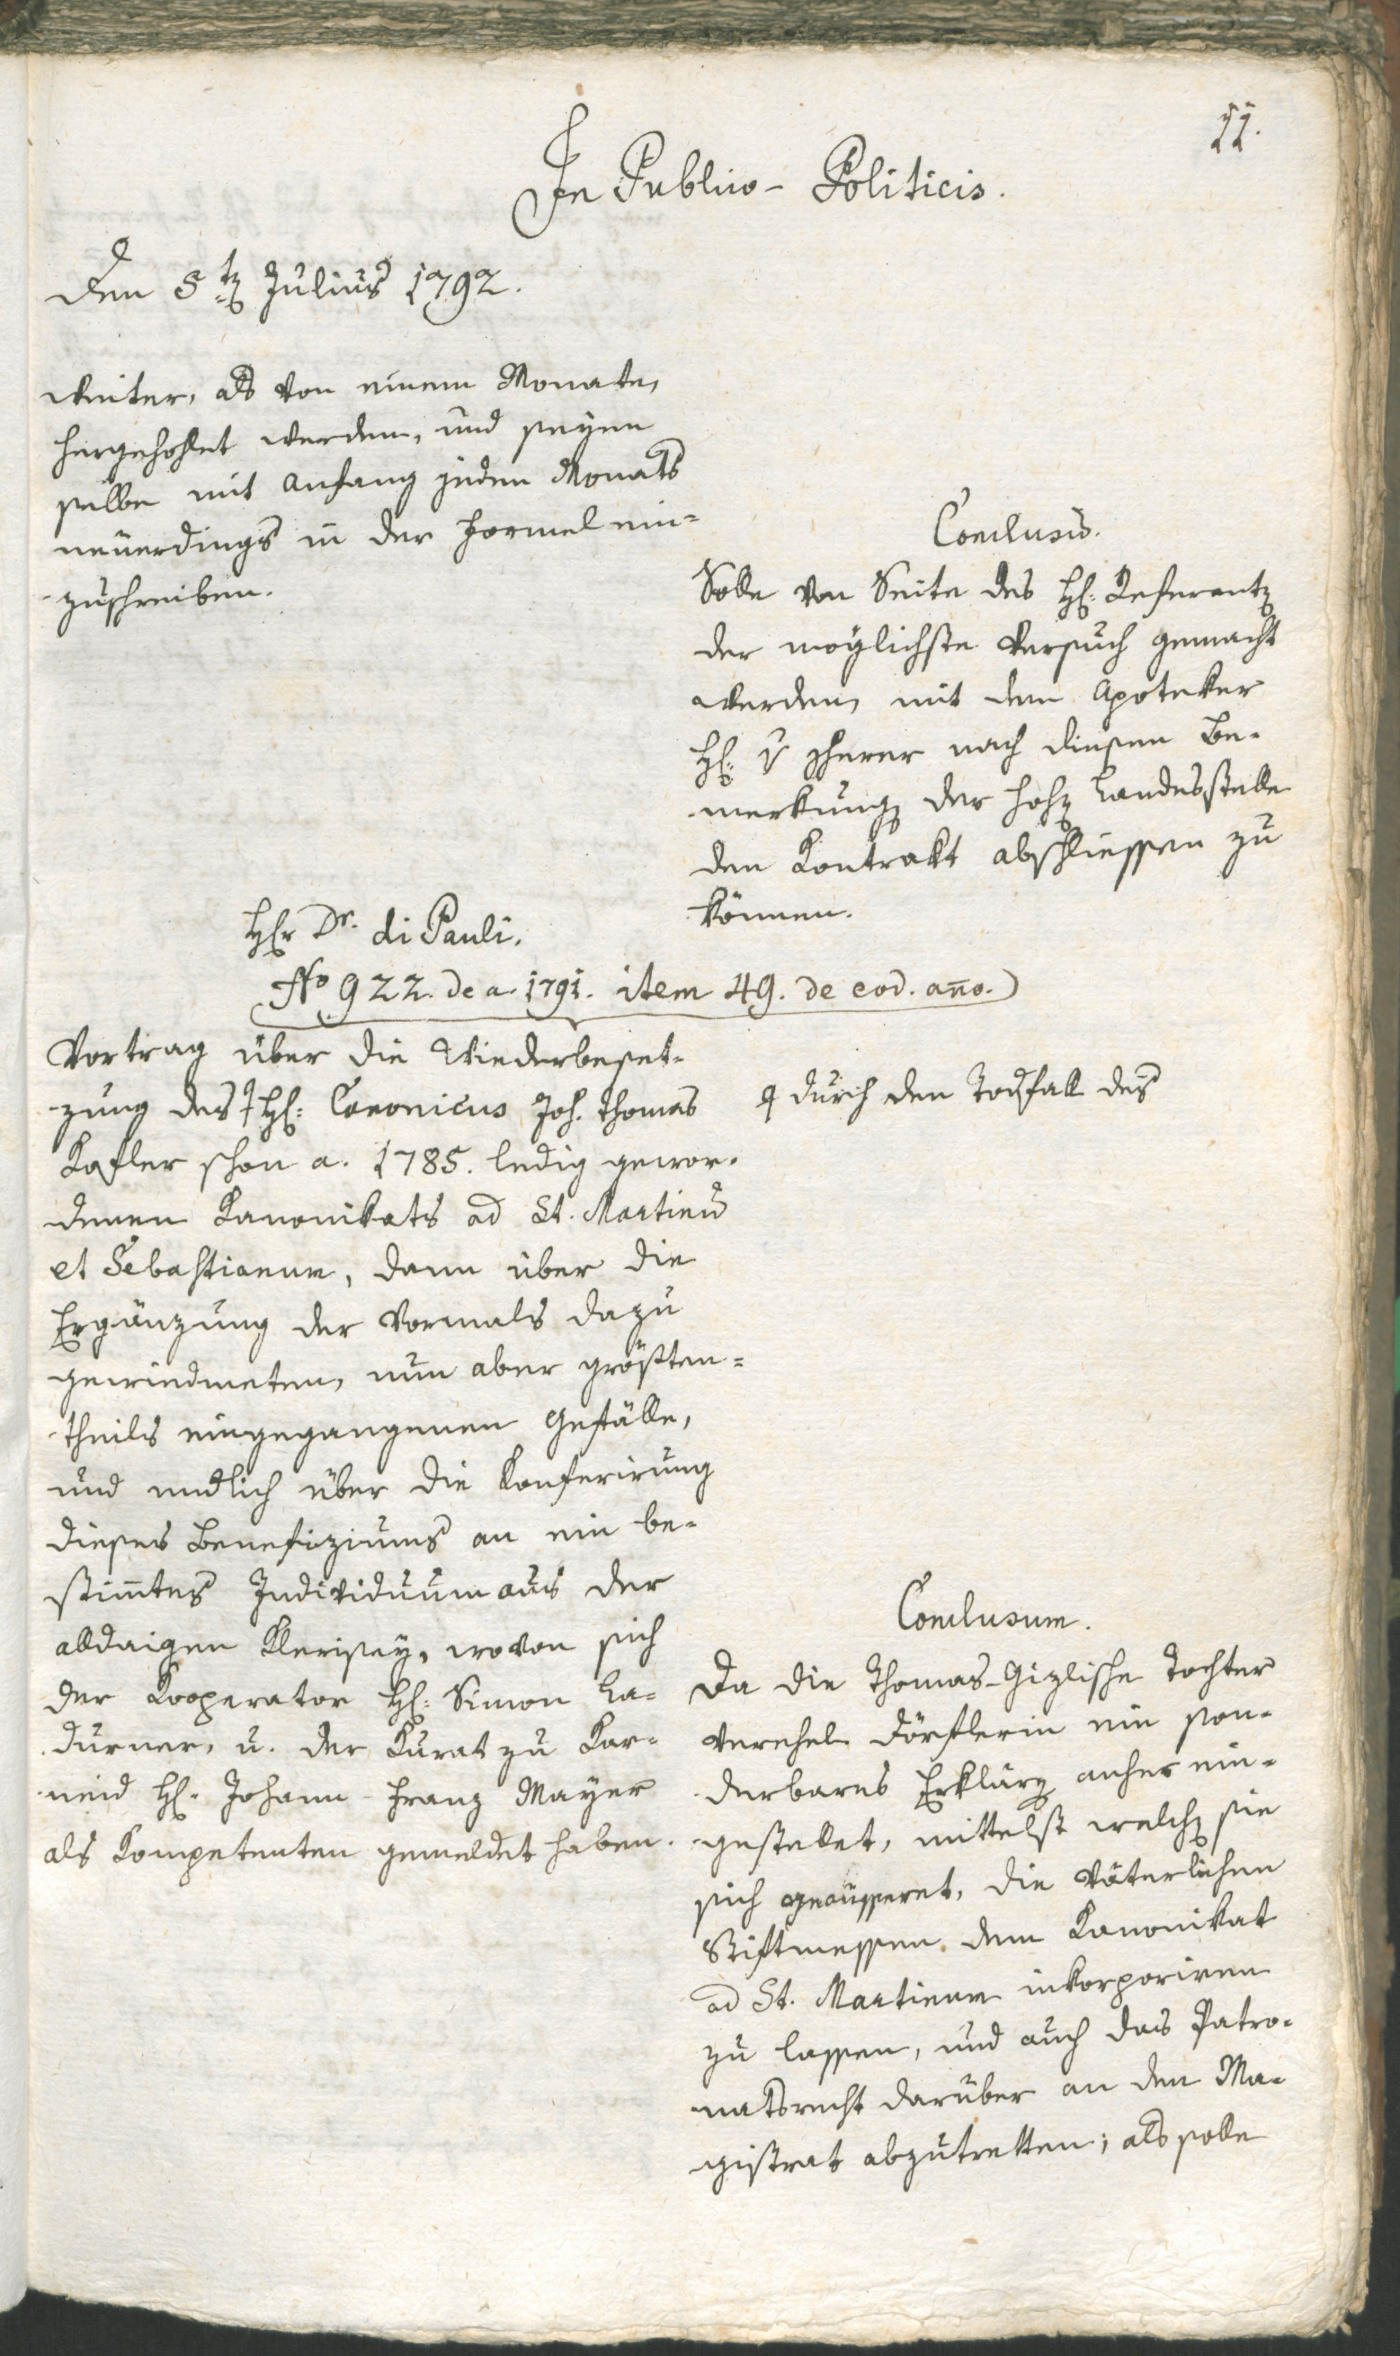 11.
In Publico-Politicis.
Den 5tn Julius 1792.
weiter, als von einem Monate,
hergehohlet werden, und seyen
selbe mit Anfang jeden Monats
neuerdings in der Formel ein=
zuschreiben.
Conclusū.
Solle von Seite des H: Referentn
der möglichste Versuch gemacht
werden, mit dem Apoteker
H: nach diesen Be=
merkungn der hohn Landesstelle
den Kontrakt abschliessen zu
können.
Hr Dr. di Pauli.
No 922. de a. 1791. item 49. de eod. año.
Vortrag über die Wiederbeset=
zung des ꟻ H: Canonicus Joh. Thomas
ꟻ durch den Todfall des
Kofler schon a. 1785. ledig gewor=
denen Kanonikats ad St. Martinū
et Sebastianum, dann über die
Ergänzung der vormals dazu
gewiedmeten, nun aber größten=
theils eingegangenen Gefälle,
und endlich über die Konferirung
dieses Benefiziums an ein be=
stim̄tes Individuum aus der
alldaigen Klerisey, wovon sich
der Kooperator H: Simon La=
durner, u. der Kurat zu Kar=
neid H. Johann Franz Mayer
als Kompetenten gemeldet haben.
Conclusum.
Da die Thomas-Gizlische Tochter
verehel. Dörflerin ein son=
derbares Erklärg anher ein=
gestellet, mittelst welchn sie
sich geäusseret, die väterlichen
Stiftmessen dem Kanonikat
ad St. Martinum inkorporiren
zu lassen, und auch das Patro=
natsrecht darüber an den Ma=
gistrat abzutretten; als solle